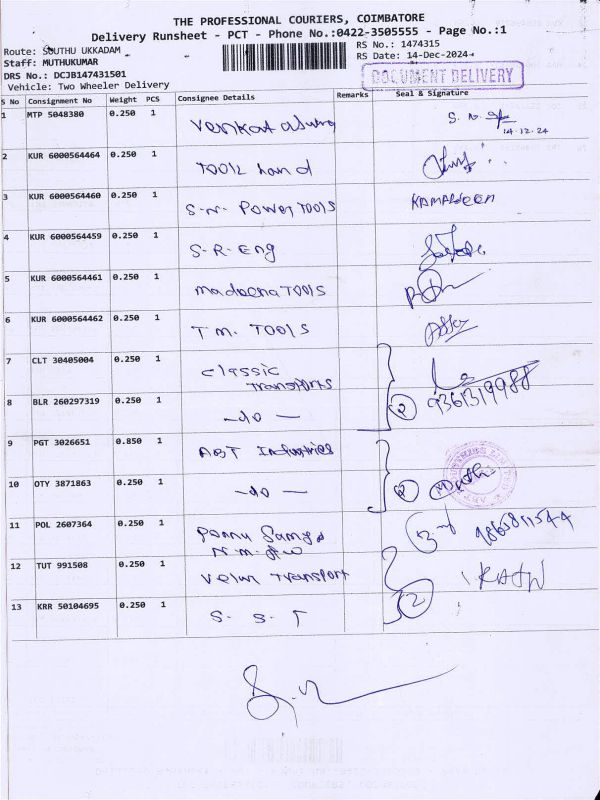 THE PROFESSIONAL COURIERS, COIMBATORE
Delivery Runsheet - PCT - Phone No.:0422-3505555 - Page No.:1
Route: SOUTHU UKKADAM
RS No.: 1474315
Staff: MUTHUKUMAR
RS Date: 14-Dec-2024
DRS No.: DCJB147431501
DOCUMENT DELIVERY
Vehicle: Two Wheeler Delivery
S No Consignment No Weight PCS Consignee Details Remarks Seal & Signature
1 MTP 5048380 0.250 1 S. N.
14.12.24
2 KUR 6000564464 0.250 1 TOOlz Land
3 KUR 6000564460 0.250 1 S-N- Power TOOlS KAMALdeen
4 KUR 6000564459 0.250 1 S-R-Eng
5 KUR 6000564461 0.250 1 madeena TOOlS
6 KUR 6000564462 0.250 1 T M. TOOlS
7 CLT 30405004 0.250 1 Classic
Transports
8 BLR 260297319 0.250 1 -do- 2 9361319988
9 PGT 3026651 0.850 1 ABT Industries
10 OTY 3871863 0.250 1 -do- 2
11 POL 2607364 0.250 1
12 TUT 991508 0.250 1 Velan Transport
13 KRR 50104695 0.250 1 S. S. T 2